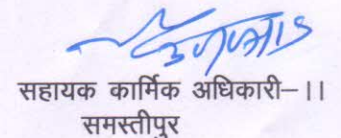 सहायक कार्मिक अधिकारी–।।
समस्तीपुर